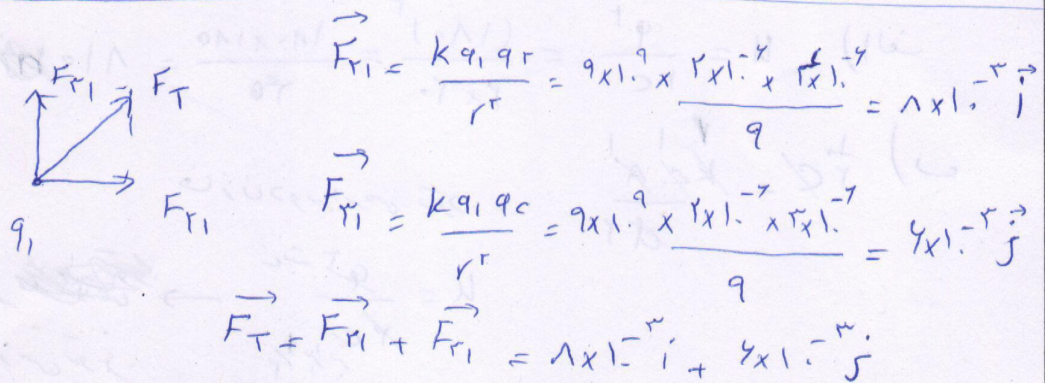 F۳۱ F_T
F۲۱
q۱
F۲۱ = kq۱q۲ / r۲ = ۹×۱۰^۹ × ۲×۱۰^-۶ × ۴×۱۰^-۶ / ۹ = ۸×۱۰^-۳ i
F۳۱ = kq۱qc / r۲ = ۹×۱۰^۹ × ۲×۱۰^-۶ × ۳×۱۰^-۶ / ۹ = ۶×۱۰^-۳ j
F_T = F۲۱ + F۳۱ = ۸×۱۰^-۳ i + ۶×۱۰^-۳ j